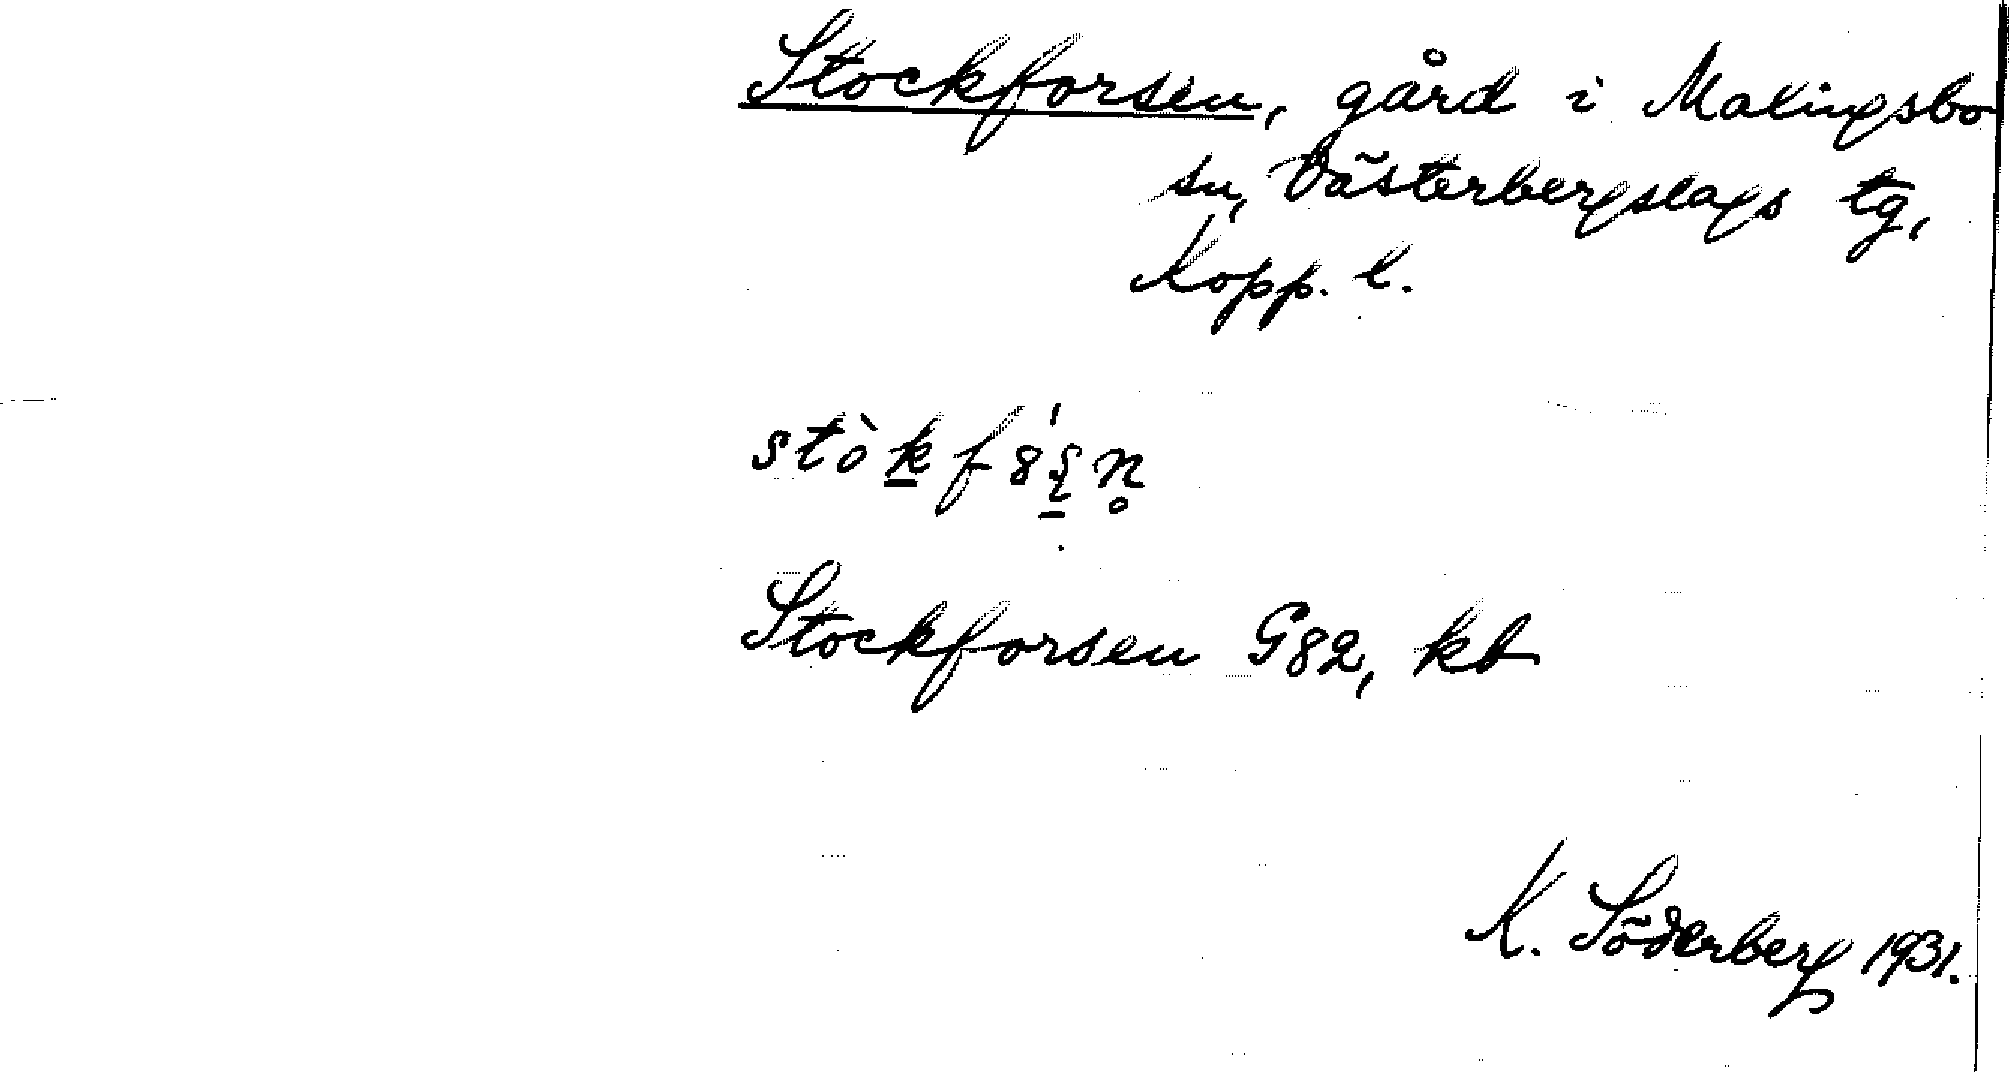 Stockforsen, gård i Malingsbo
sn, Västerbergslags tg,
Kopp. l.
stòkf8́ʂn̥
Stockforsen G82, kb
K. Söderberg 1931.